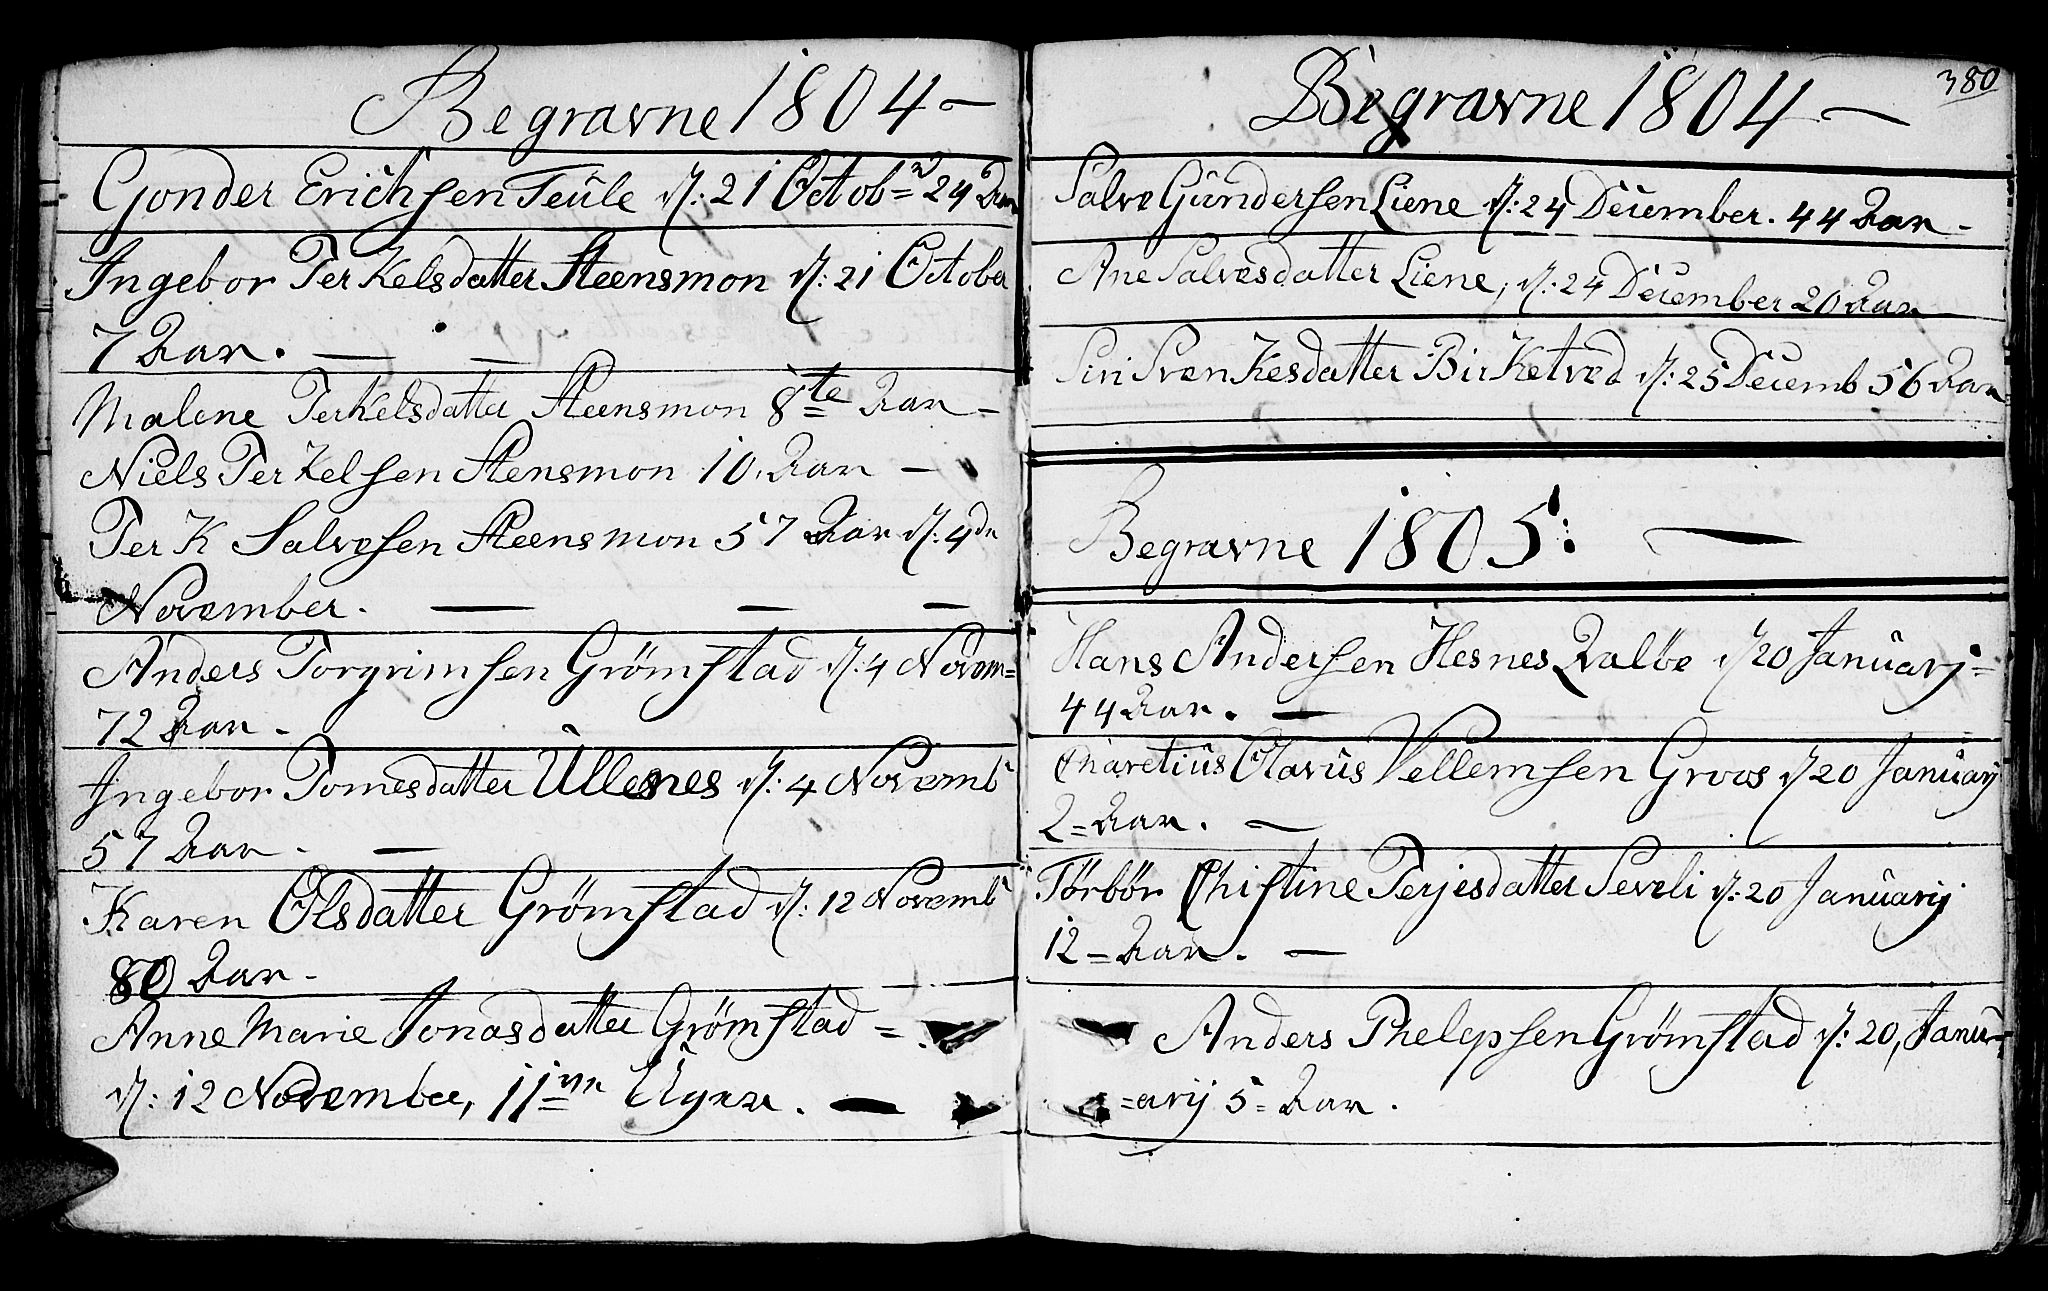 Begravne 1804 –
Gonder Erichsen Teüle d: 21 Octob= 24 Aar
Ingebor Terkelsdatter Steensmon d: 21 October
7 Aar. — —
Malene Terkelsdatter Steensmon 8te Aar –
Niels Terkelsen Stensmon 10. Aar –
Terk Salvesen Steensmon 57 Aar d: 4de
November. — — —
Anders Torgrimsen Grømstad d: 4 Novem=
72 Aar –
Ingebor Tomesdatter Ullenes d: 4 Novemb
57 Aar – —
Karen Olsdatter Grømstad d: 12 Novemb
80 Aar –
Anne Marie Jonasdatter Grømstad =
d: 12 November, 11 Uger. —
380
Begravne 1804 —
Salve Gündersen Liene d: 24 December. 44 Aar –
Ane Salvesdatter Liene, d: 24 December 20 Aar
Siri Svenkesdatter Birketved d: 25 Decemb 56 Aar
Begravne 1805: —
Hans Andersen Hesnes d 20 Janüarj=
44 Aar. —
Olavüs Vellemsen Groos d 20 Janüarij
2 = Aar. —
Törbör Christine Terjesdatter Seveli d: 20 Janüarij
12 = Aar. —
Anders Phelepsen Grømstad d: 20, Janü=
=arij 5 = Aar.